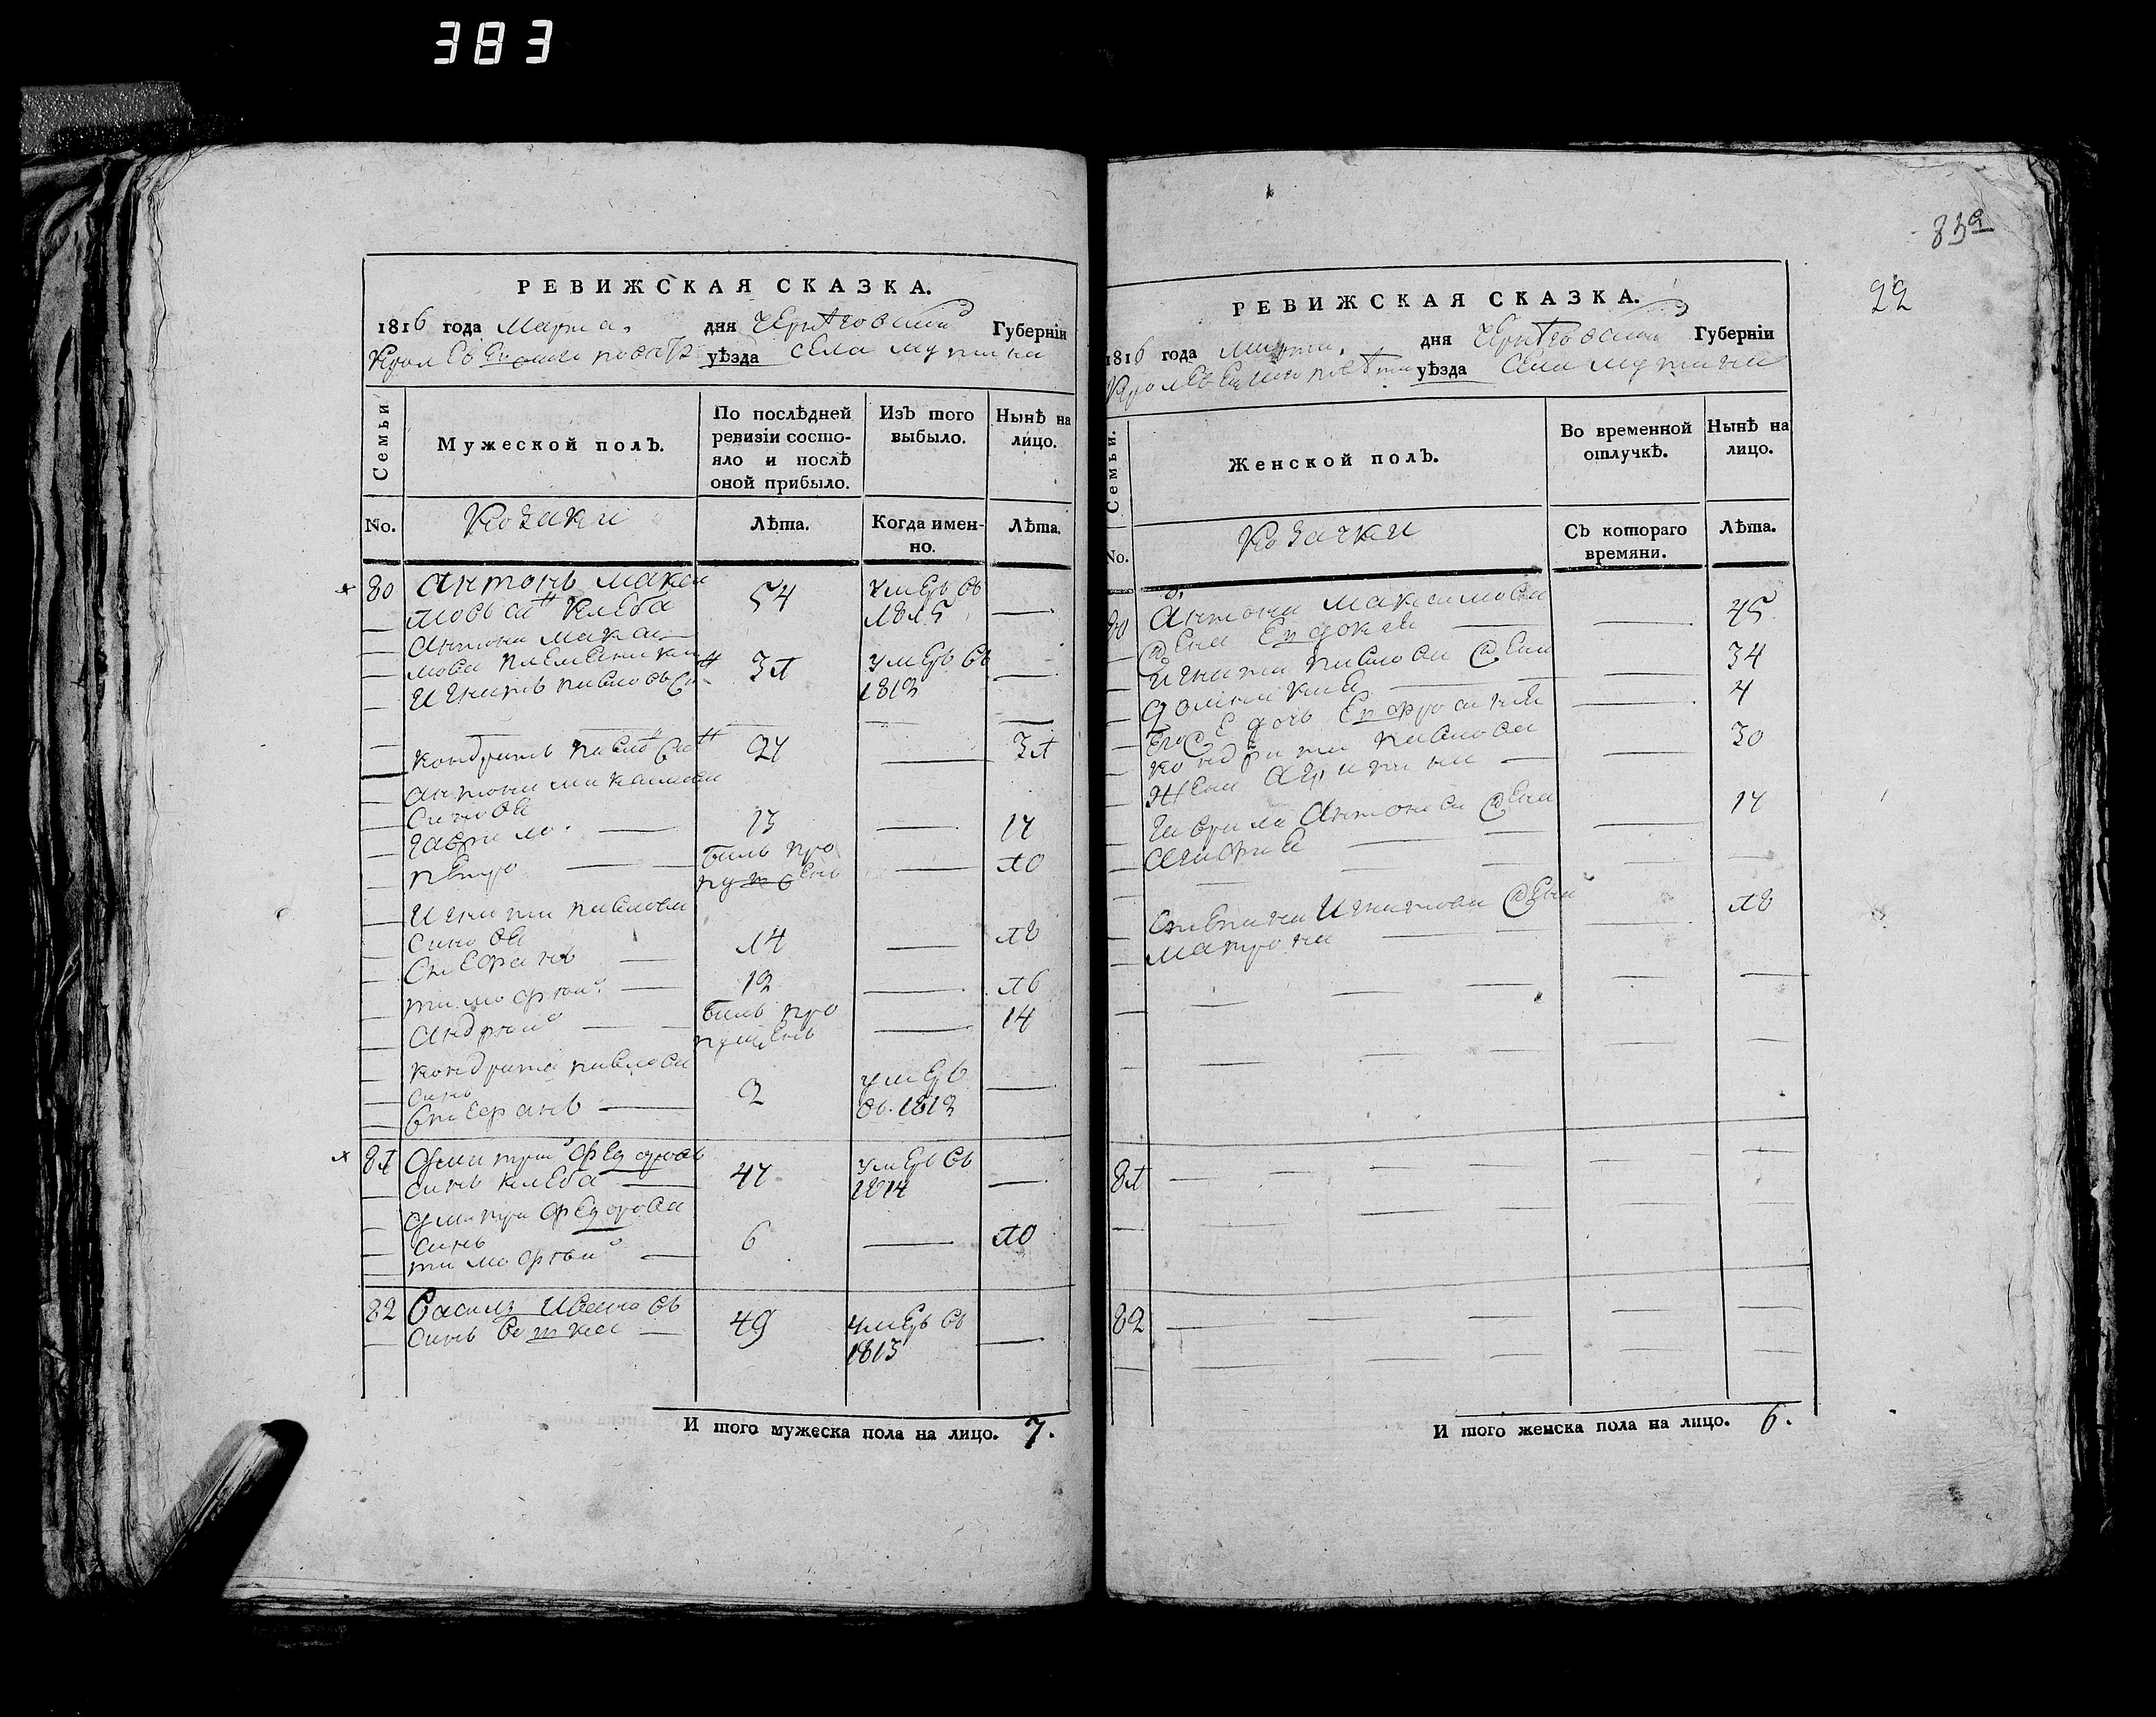 383
РЕВИЖСКАЯ СКАЗКА.
1816 года Марта дня Черниговской Губерніи
Кролевецкого повѣту уѣзда села мутина
Семьи
Мужеской полъ.
По послѣдней ревизіи состо-
яло и послѣ
оной прибыло.
Изъ того выбыло.
Нынѣ на лицо.
No.
Козаки
Лѣта.
Когда имен-
но.
Лѣта.
80 Антонъ макси
мовъ сн Клеба 54 умеръ въ 1815
Антона макси
мова племенники
Игнатъ павловъ сн 31 умеръ въ 1812
кондратъ павло сн 27 31
антона максимова
синови
гаврило 13 17
петро билъ про
пущенъ 10
Игната павлова
синови
Стефанъ 14 18
тимофѣй 12 16
андрѣй билъ про
пущенъ 14
кондрата павлова
синъ
Стефанъ 2 умеръ
въ 1812
81 Дмитрій федоровъ
синъ клеба 47 умеръ въ
1814
дмитра федорова
синъ
тимофѣй 6 10
82 Василь Ивановъ
синъ 49 умеръ въ
1813
И того мужеска пола на лицо. 7.
83а
22
РЕВИЖСКАЯ СКАЗКА.
1816 года марта дня Черниговской Губерніи
Кролевецкого повѣта уѣзда села мутина
Семьи.
Женской полъ.
Во временной
отлучкѣ.
Нынѣ на
лицо.
No.
Козачки
Съ котораго
времяни.
Лѣта.
80 Антона максимова
жена Евдокія 45
Игната павлова жена
домникия 34
его же дочь Ефросинія 4
кондрата павлова
жена агрипина 30
гаврила антонова жена
агафия 17
стефана Игнатова жена
матрона 18
81
82
И того женска пола на лицо. 6.